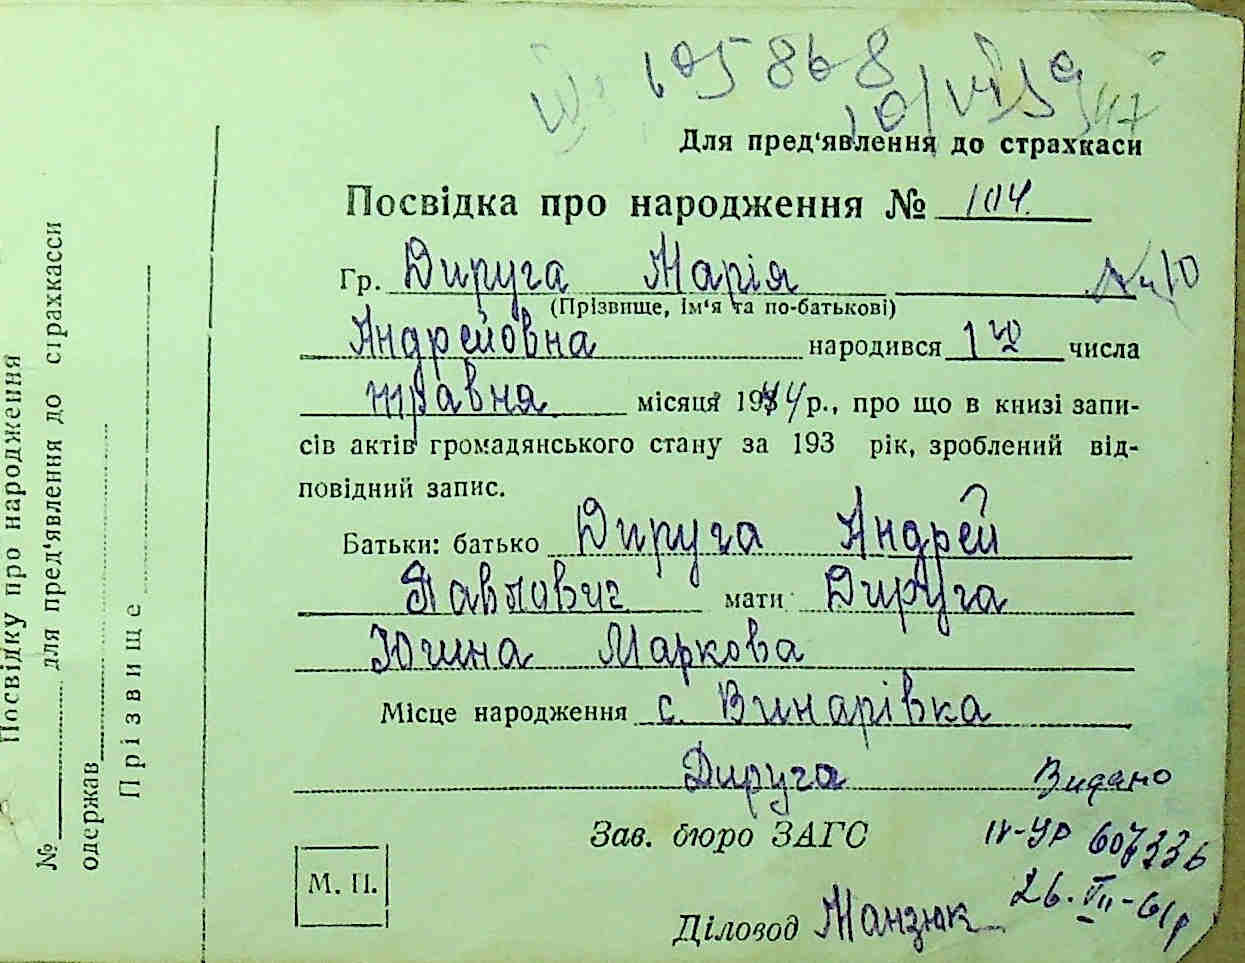 105868
Для пред'явлення до страхкаси
Посвідка про народження № 104.
Гр. Дируга Марія
(Прізвище, ім'я та по-батькові)
Андрейовна народився 12 числа
травня місяця 1944 р., про що в книзі запи-
сів актів громадянського стану за 193 рік, зроблений від-
повідний запис.
Батьки: батько Дируга Андрей
Павлович мати Дируга
Югина Маркова
Місце народження с. Винарівка
Дируга Видано
Зав. бюро ЗАГС IV-УР 607336
М. П. 26.VII-61р
Діловод Манзюк
Посвідку про народження
№ для пред'явлення до страхкасси
одержав
Прізвище